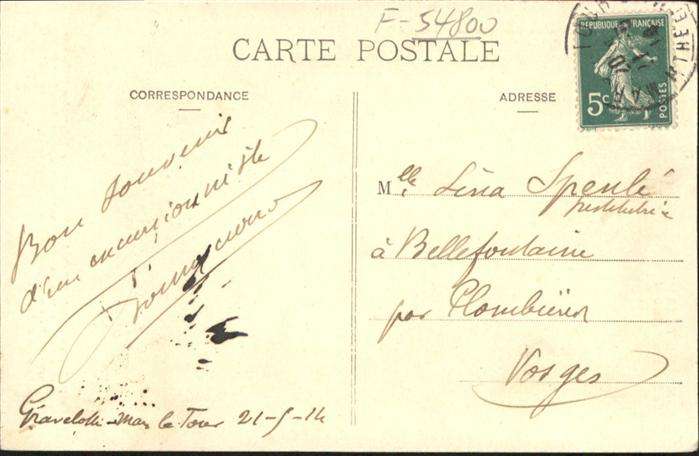 F-54800
CARTE POSTALE
CORRESPONDANCE
ADRESSE
RÉPUBLIQUE FRANÇAISE
5c
POSTES
Bon souvenir
d'un excursionniste
Mlle Léna Spenlé
Institutrice
à Bellefontaine
par Plombières
Vosges
Gravelotte Mars la Tour 21-5-14